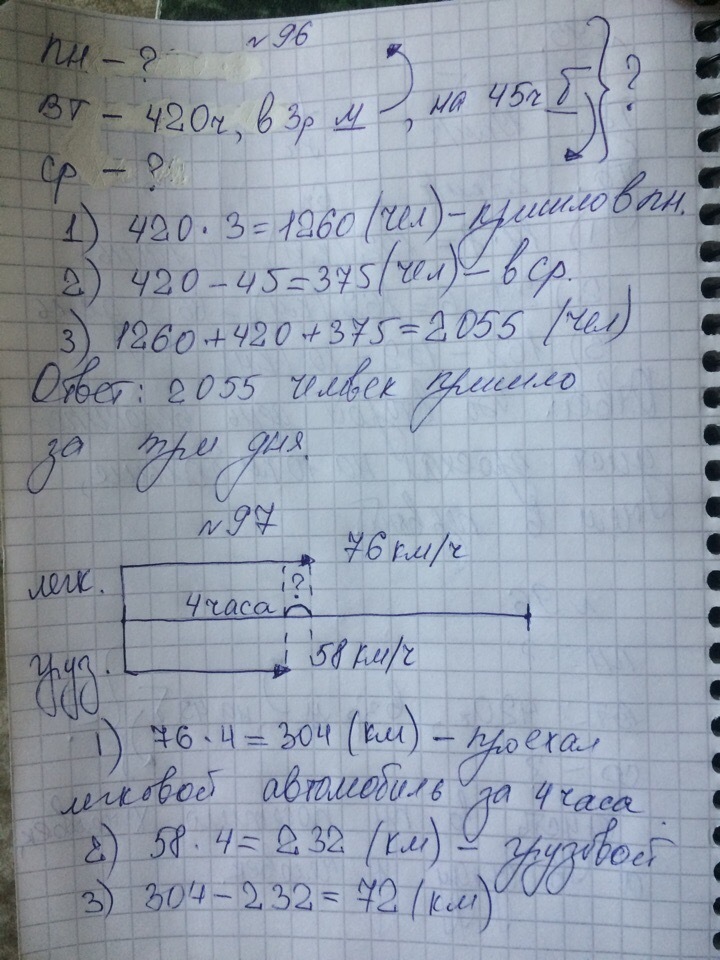 №96
ПН – ?
ВТ – 420ч, в 3р м, на 45ч б } ?
Ср – ?
1) 420 · 3 = 1260 (чел) – пришло в пн.
2) 420 – 45 = 375 (чел) – в ср.
3) 1260 + 420 + 375 = 2055 (чел)
Ответ: 2055 человек пришло
за три дня.
№97
76 км/ч
легк.
?
4 часа
58 км/ч
груз.
1) 76 · 4 = 304 (км) – проехал
легковой автомобиль за 4 часа
2) 58 · 4 = 232 (км) – грузовой
3) 304 – 232 = 72 (км)